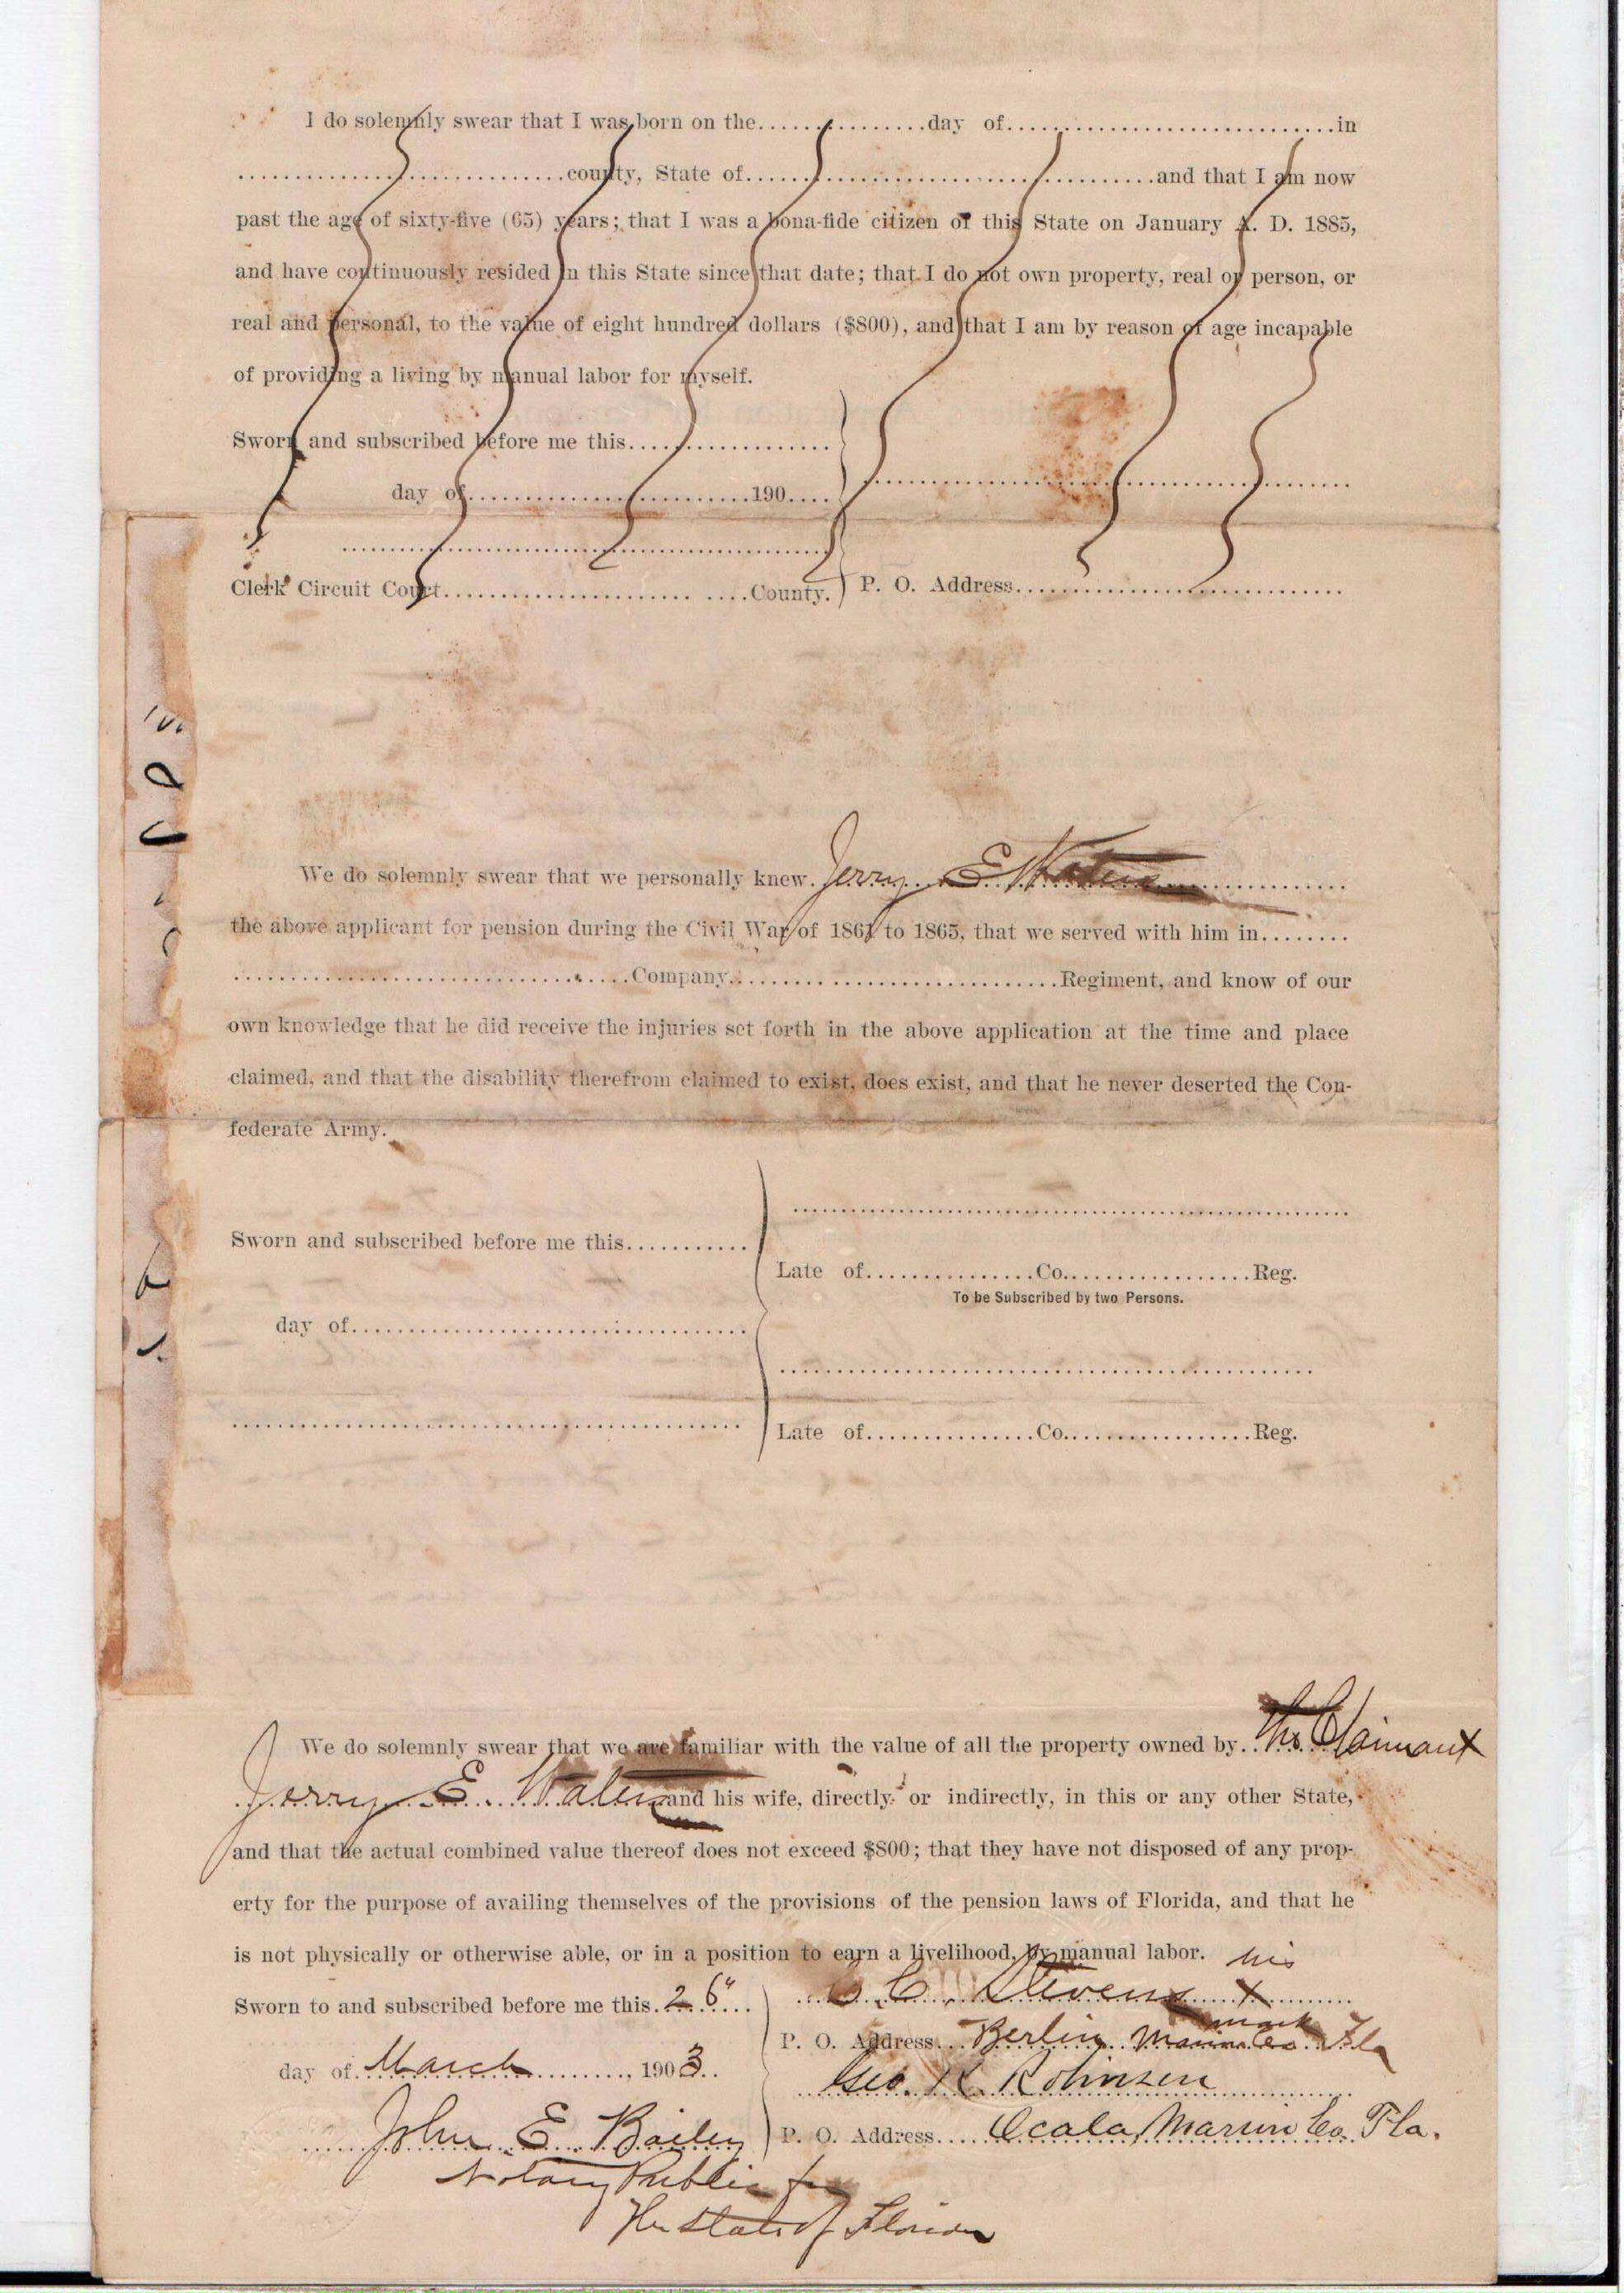 I do solemnly swear that I was born on the................day of.............................in
.............................county, State of....................................and that I am now
past the age of sixty-five (65) years; that I was a bona-fide citizen of this State on January A. D. 1885,
and have continuously resided in this State since that date; that I do not own property, real or person, or
real and personal, to the value of eight hundred dollars ($800), and that I am by reason of age incapable
of providing a living by manual labor for myself.
Sworn and subscribed before me this..................
day of.........................190....
Clerk Circuit Court..........................County.
P. O. Address.............................
We do solemnly swear that we personally knew Jerry E Waters
the above applicant for pension during the Civil War of 1861 to 1865, that we served with him in........
...................................Company.............................Regiment, and know of our
own knowledge that he did receive the injuries set forth in the above application at the time and place
claimed, and that the disability therefrom claimed to exist, does exist, and that he never deserted the Con-
federate Army.
Sworn and subscribed before me this...........
Late of...............Co.................Reg.
To be Subscribed by two Persons.
day of...................................
Late of...............Co.................Reg.
We do solemnly swear that we are familiar with the value of all the property owned by the Claimant
Jerry E. Waters and his wife, directly or indirectly, in this or any other State,
and that the actual combined value thereof does not exceed $800; that they have not disposed of any prop-
erty for the purpose of availing themselves of the provisions of the pension laws of Florida, and that he
is not physically or otherwise able, or in a position to earn a livelihood, by manual labor.
his
Sworn to and subscribed before me this 26"
C. C. Stevens X
mark
P. O. Address Berlin Marion Co Fla
day of March, 1903
Geo. K. Robinson
John E. Bailey
P. O. Address Ocala, Marion Co. Fla.
Notary Public for
the State of Florida